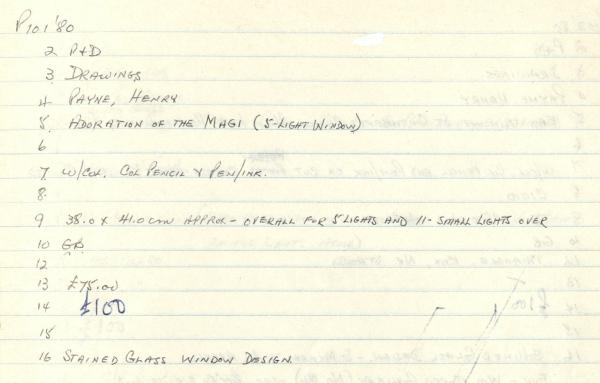 P101'80
2 P+D
3 DRAWINGS
4 PAYNE, HENRY
5. ADORATION OF THE MAGI (5-LIGHT WINDOW)
6
7. W/COL. COL PENCIL & PEN/INK.
8.
9 38.0 X 41.0cm APPROX - OVERALL FOR 5 LIGHTS AND 11 - SMALL LIGHTS OVER
10 GB
12
13 £75.00
14 £100
15
16 STAINED GLASS WINDOW DESIGN.